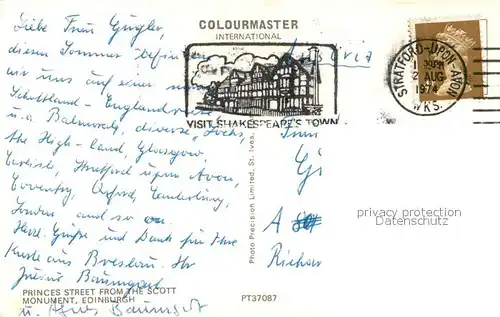 Liebe Frau Gugler,
diesen Sommer befinden
wir uns auf einer
Schottland - England
u.a. Balmoral, diverse Lochs,
the High-land, Glasgow,
Carlisle, Stratford upon Avon,
Coventry, Oxford, Canterbury,
London und so
Herzl. Grüße und Dank für Ihre
Karte aus Breslau. Ihr
Baumgart
u. Agnes Baumgart
COLOURMASTER
INTERNATIONAL
Austria
VISIT SHAKESPEARE'S TOWN
STRATFORD-UPON-AVON
2 AUG
1974
WKS.
Photo Precision Limited, St. Ives,
A
privacy protection
PRINCES STREET FROM THE SCOTT
MONUMENT, EDINBURGH
PT37087